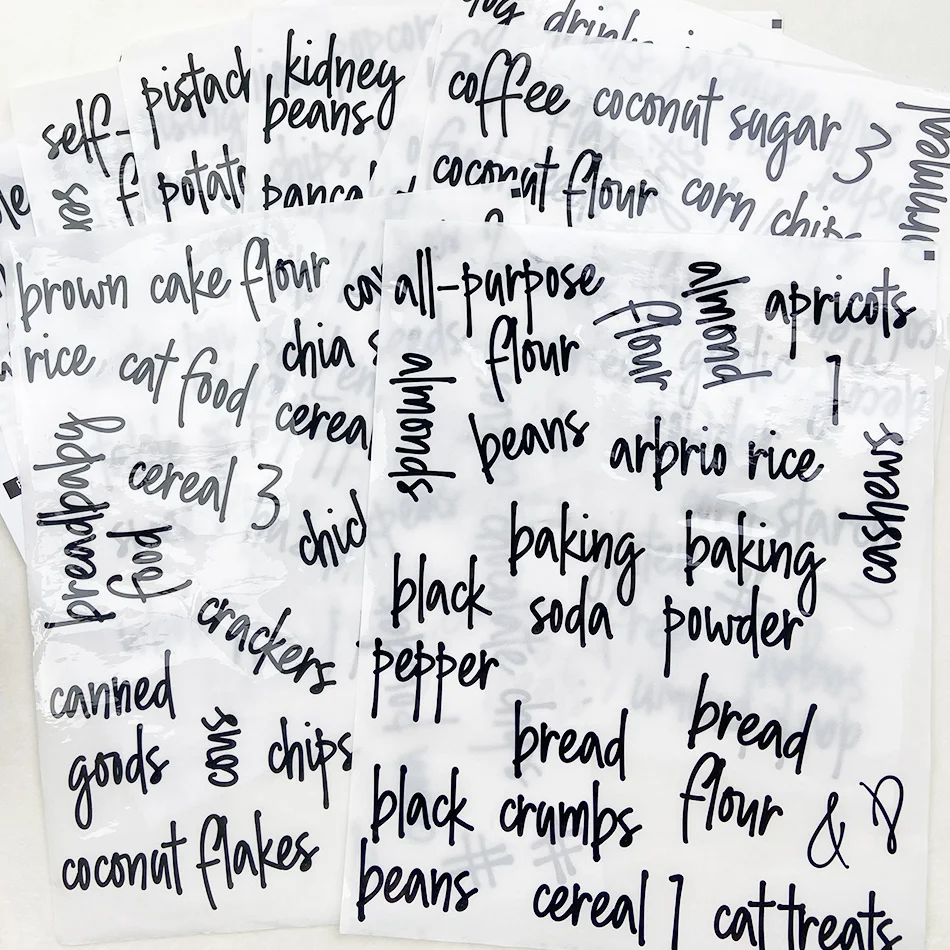 drink
self-
pistach
kidney
beans
coffee
coconut sugar 3
coconut flour
corn chips
potato
brown
rice
cake flour
cat food
chia
cereal
breadpaby
cereal 3
dog
crackers
canned
goods
chips
coconut flakes
all-purpose
flour
almond
flour
apricots
1
almonds
beans
arbrio rice
cashews
baking
soda
baking
powder
black
pepper
bread
crumbs
bread
flour
&
black
beans
cereal 1
cat treats